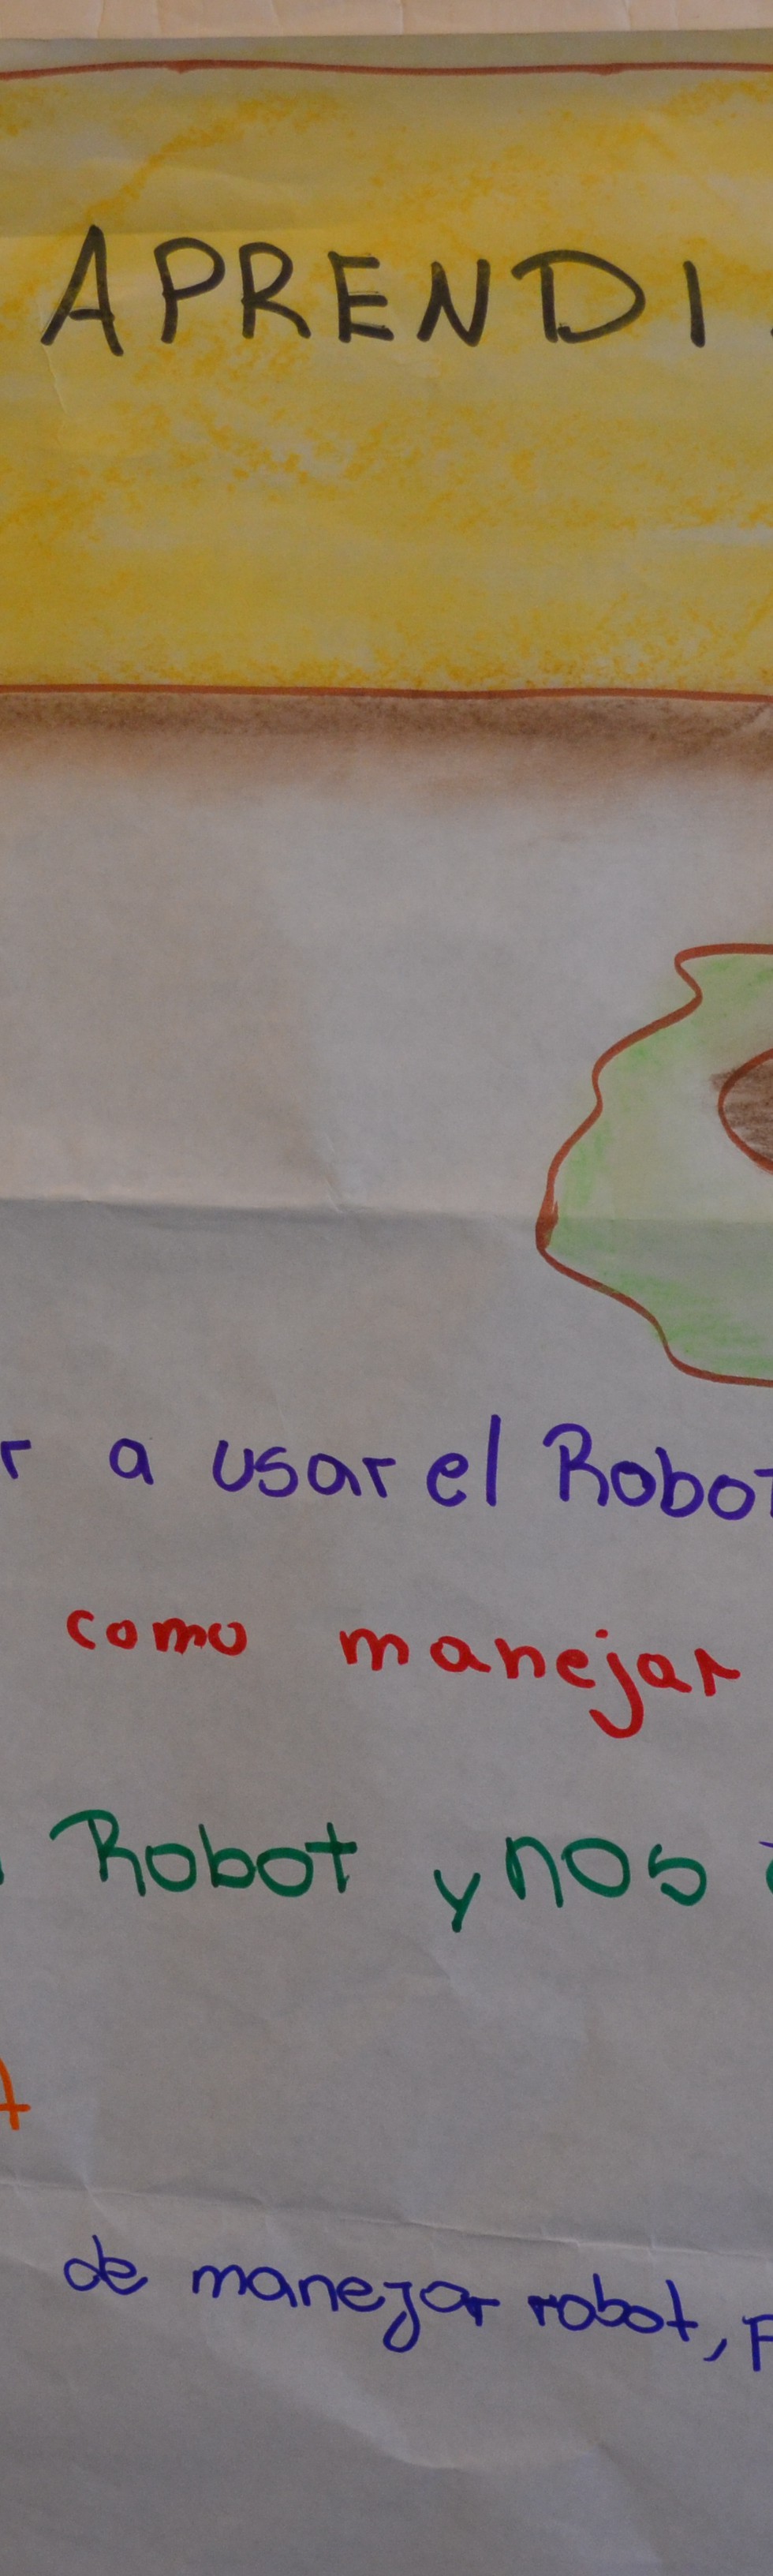 APRENDI
r a usar el Robot
como manejar
Robot y nos
A
de manejar robot, P